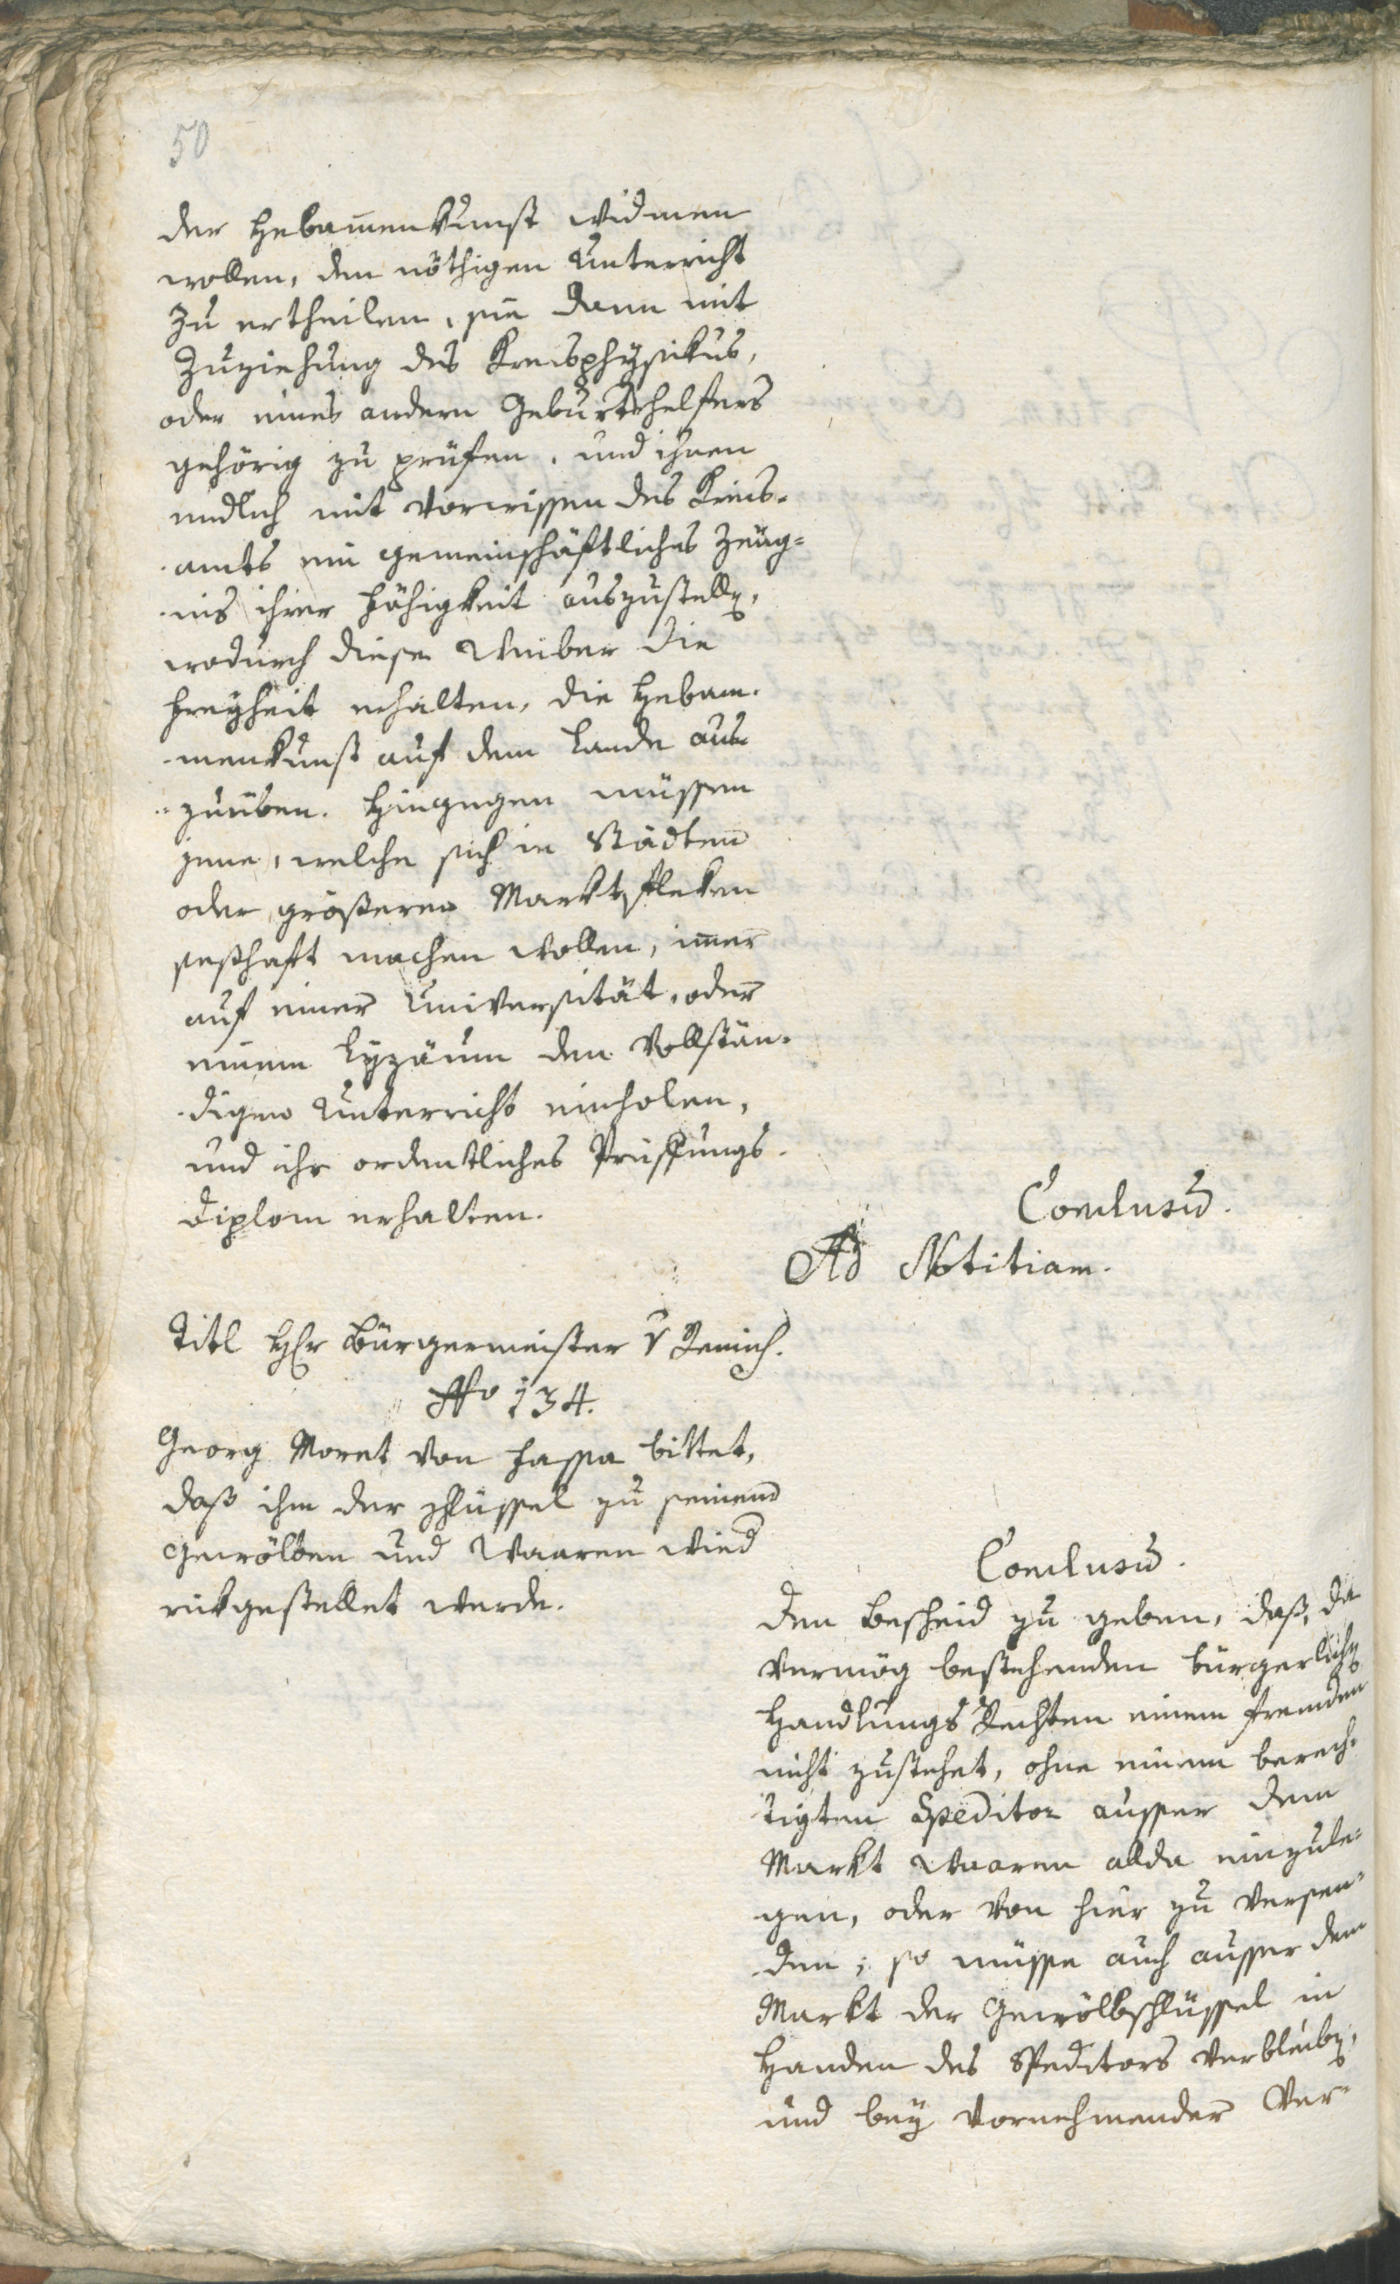 50
der Hebam̄enkunst widmen
wollen, den nöthigen Unterricht
zu ertheilen, sie dann mit
Zuziehung des Kreisphÿsikus,
oder eines andern Geburtshelfers
gehörig zu prüfen, und ihnen
endlich mit Vorwissen des Kreis-
amts ein gemeinschäftliches Zeug=
nis ihrer Fähigkeit auszustellen,
wodurch diese Weiber die
Freÿheit erhalten, die Hebam-
menkunst auf dem Lande aus
zuüben. Hingegen müssen
jene, welche sich in Städten
oder größeren Marktfleken
seßhaft machen wollen, im̄er
auf einer Universität, oder
einem Lyzäum den Vollstän-
digen Unterricht einholen,
und ihr ordentliches Prüfungs-
Diplom erhalten.
Conclusū.
Ad Notitiam.
Titl Hr Bürgermeister v
No 134.
Georg Moret von Fassa bittet,
daß ihm der Schlüssel zu seinem
Gewölben und Waaren wied
rükgestellet werde.
Conclusū.
Den Bescheid zu geben, daß, da
vermög bestehenden bürgerlichen
Handlungs Rechten einem Fremden
nicht zustehet, ohne einem berech-
tigten Speditor ausser dem
Markt Waaren allda einzule=
gen, oder von hier zu versen=
den; so müsse auch ausser dem
Markt der Gewölbschlüssel in
Handen des Speditors verbleiben,
und beÿ vornehmender Ver=